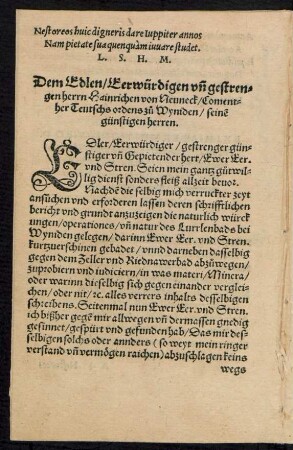 Nestoreos huic digneris dare Iuppiter annos
Nam pietate sua quenquàm iuuare studet.
L. S. H. M.
Dem Edlen/Eerwürdigen vñ gestren-
gen herrn Hainrichen von Neuneck/Coment-
ther Teutschs ordens zů Wynden/ seinẽ
günstigen herren.
EDler/Eerwürdiger/gestrenger gün-
stiger vñ Gepietender herr/Ewer Eer.
vnd Stren. Seien mein gantz gůtwil-
lig dienst sonders fleiß allzeit beuor.
Nachdẽ die selbig mich verruckter zeyt
ansůchen vnd erforderen lassen deren schrifftlichen
bericht vnd grundt anzůzeigen die naturlich würck
ungen/operationes/vñ natur des Lurrlenbads bei
Wynden gelegen/darinn Ewer Eer. vnd Stren.
kurtzuerschinen gebadet/vnnd darneben dasselbig
gegen dem Zeller vnd Riednawerbad abzůwegen/
zůprobiern vnd iudiciern/in was materi/Minera/
oder warinn dieselbig sich gegen einander vergleich-
en/oder nit/ꝛc. alles verrers inhalts desselbigen
schreibens. Seitenmal nun Ewer Eer. vnd Stren.
ich bißher gegẽ mir allwegen vñ dermassen gnedig
gesinnet/gespürt vnd gefunden hab/Das mir des-
selbigen solchs oder annders (so weyt mein ringer
verstand vñ vermögen raichen) abzůschlagen keins
wegs